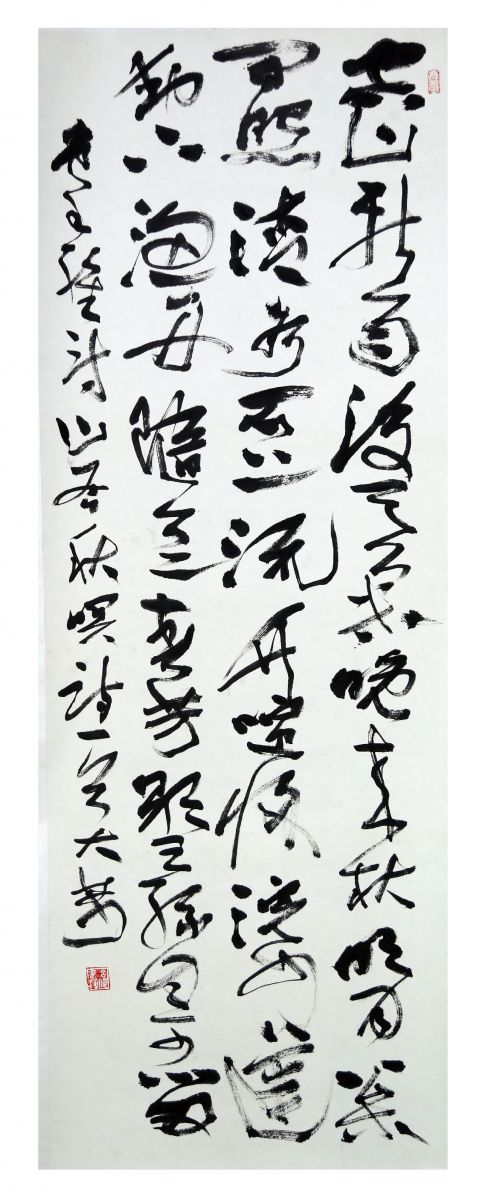 空山新雨後天氣晚來秋明月松
間照清泉石上流竹喧歸浣女蓮
動下漁舟隨意春芳歇王孫自可留
王維詩山居秋暝詩一首大